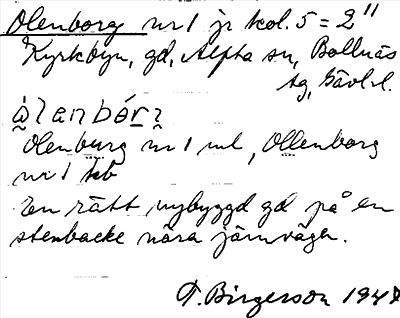 Olenborg nr 1 jr kol. 5 = 2"
Kyrkbyn, gd, Alfta sn, Bollnäs
tg, Gävl. l.
Olenburg nr 1 ml, Ollenborg
nr 1 kb
En rätt nybyggd gd på en
stenbacke nära järnvägen.
T. Birgerson 1947